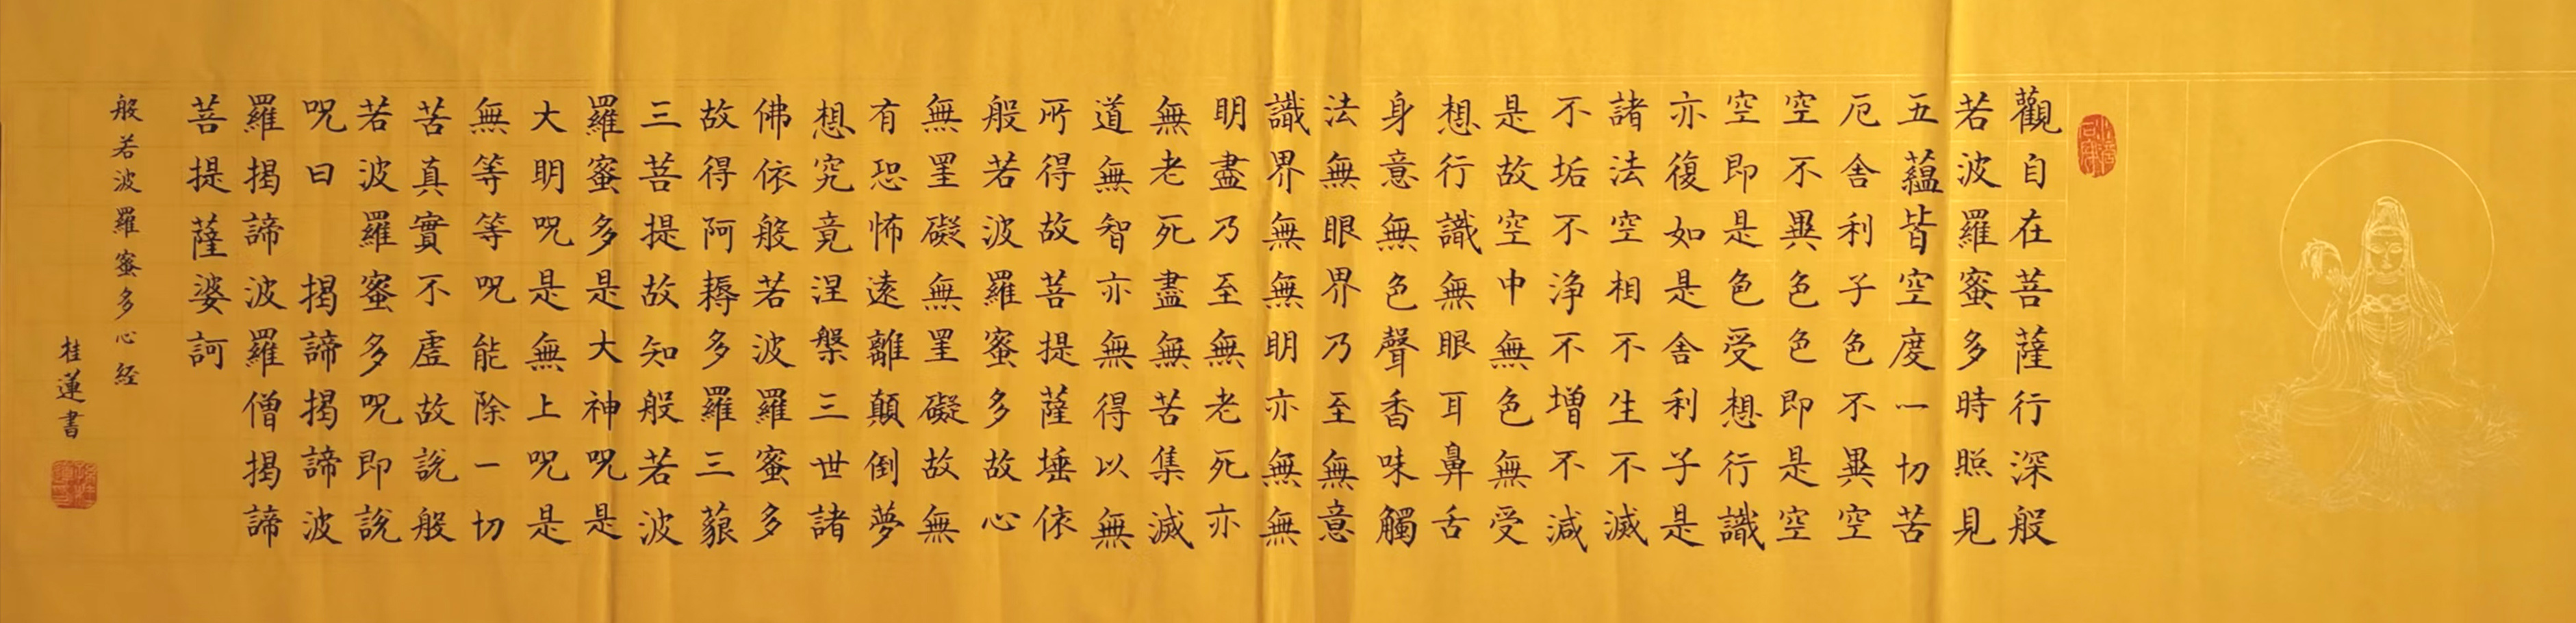 觀自在菩薩行深般
若波羅蜜多時照見
五蘊皆空度一切苦
厄舍利子色不異空
空不異色色即是空
空即是色受想行識
亦復如是舍利子是
諸法空相不生不滅
不垢不浄不增不減
是故空中無色無受
想行識無眼耳鼻舌
身意無色聲香味觸
法無眼界乃至無意
識界無無明亦無無
明盡乃至無老死亦
無老死盡無苦集滅
道無智亦無得以無
所得故菩提薩埵依
般若波羅蜜多故心
無罣礙無罣礙故無
有恐怖遠離顛倒夢
想究竟涅槃三世諸
佛依般若波羅蜜多
故得阿耨多羅三藐
三菩提故知般若波
羅蜜多是大神呪是
大明呪是無上呪是
無等等呪能除一切
苦真實不虛故說般
若波羅蜜多呪即說
呪曰 揭諦揭諦波
羅揭諦波羅僧揭諦
菩提薩婆訶
般若波羅蜜多心経
桂蓮書